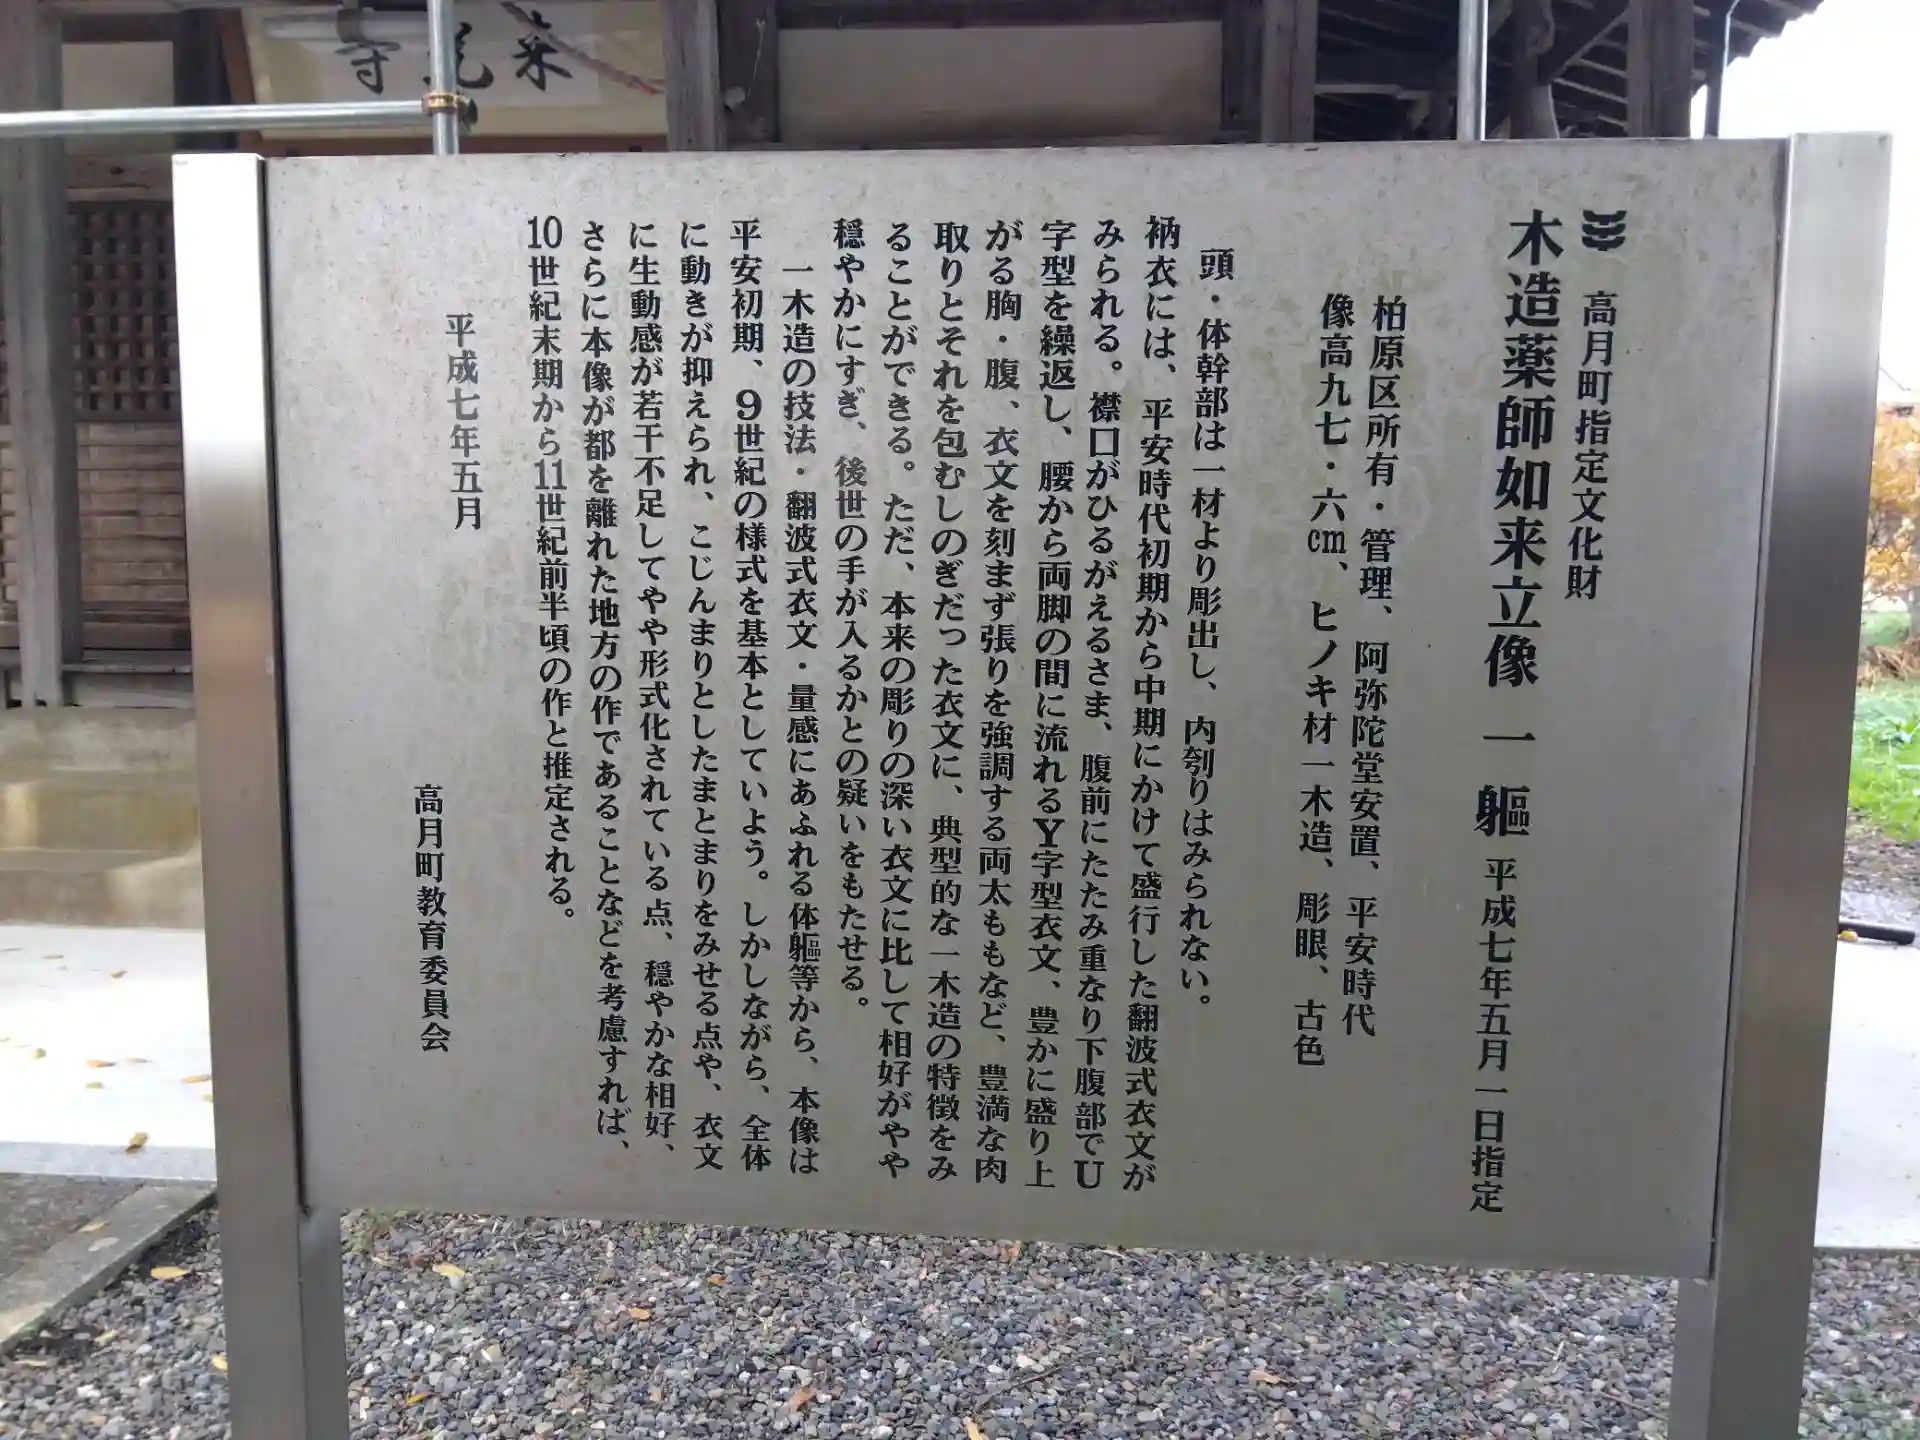 来光寺
高月町指定文化財
木造薬師如来立像 一 軀 平成七年五月一日指定
柏原区所有・管理、阿弥陀堂安置、平安時代
像高九七・六㎝、ヒノキ材一木造、彫眼、古色
頭・体幹部は一材より彫出し、内刳りはみられない。
衲衣には、平安時代初期から中期にかけて盛行した翻波式衣文が
みられる。襟口がひるがえるさま、腹前にたたみ重なり下腹部でU
字型を繰返し、腰から両脚の間に流れるY字型衣文、豊かに盛り上
がる胸・腹、衣文を刻まず張りを強調する両太ももなど、豊満な肉
取りとそれを包むしのぎだった衣文に、典型的な一木造の特徴をみ
ることができる。ただ、本来の彫りの深い衣文に比して相好がやや
穏やかにすぎ、後世の手が入るかとの疑いをもたせる。
一木造の技法・翻波式衣文・量感にあふれる体軀等から、本像は
平安初期、9世紀の様式を基本としていよう。しかしながら、全体
に動きが抑えられ、こじんまりとしたまとまりをみせる点や、衣文
に生動感が若干不足してやや形式化されている点、穏やかな相好、
さらに本像が都を離れた地方の作であることなどを考慮すれば、
10世紀末期から11世紀前半頃の作と推定される。
平成七年五月
高月町教育委員会